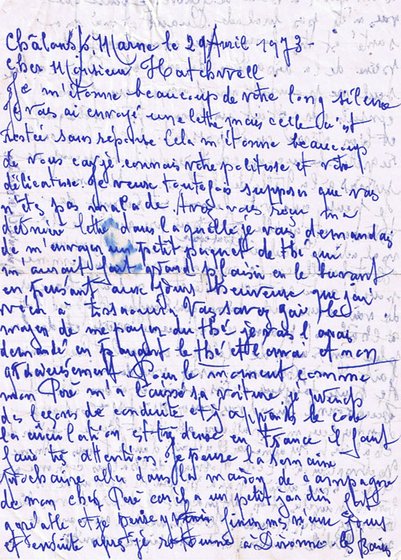 Châlons s/ Marne le 29 Avril 1973 -
Cher Monsieur Hatchwell
Je m'étonne beaucoup de votre long silence
Je vous ai envoyé une lettre mais celle ci est
restée sans réponse cela m'étonne beaucoup
de vous car je connais votre politesse et votre
délicatesse. Je veux toutefois supposer que vous
n'êtes pas malade. Avez-vous reçu ma
dernière lettre dans laquelle je vous demandais
de m'envoyer un petit paquet de thé qui
m'aurait fait grand plaisir en le buvant
en pensant aux jours heureux que j'ai
vécu à Vous savez que j'ai les
moyens de me payer du thé je vous l'avais
demandé en payant le thé et le envoi et non
gracieusement. Pour le moment comme
mon Père m'a laissé sa voiture, je prends
des leçons de conduite et j'apprends le code
la circulation est très dense en France il faut
faire très attention. Je pense la semaine
prochaine aller dans la maison de campagne
de mon cher Père car il y a un petit jardin fort
agréable et je pense y venir finir mes vieux jours
et ensuite après je retourne à Divonne les Bains